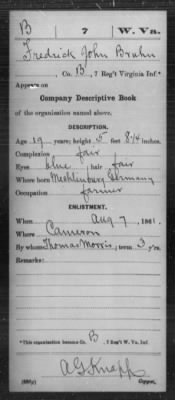 B 7 W. Va.
Fredrick John Bruhn
, Co. B, 7 Reg't Virginia Inf.*
Appears on
Company Descriptive Book
of the organization named above.
DESCRIPTION.
Age 19 years; height 5 feet 8 1/4 inches.
Complexion fair
Eyes blue, hair fair
Where born Mechlenburg Germany
Occupation farmer
ENLISTMENT.
When Aug 7, 1861.
Where Cameron
By whom Thomas Morris; term 3 y'rs.
Remarks:
*This organization became Co. B, 7 Reg't W. Va. Inf.
A G Knapp
Copyist.